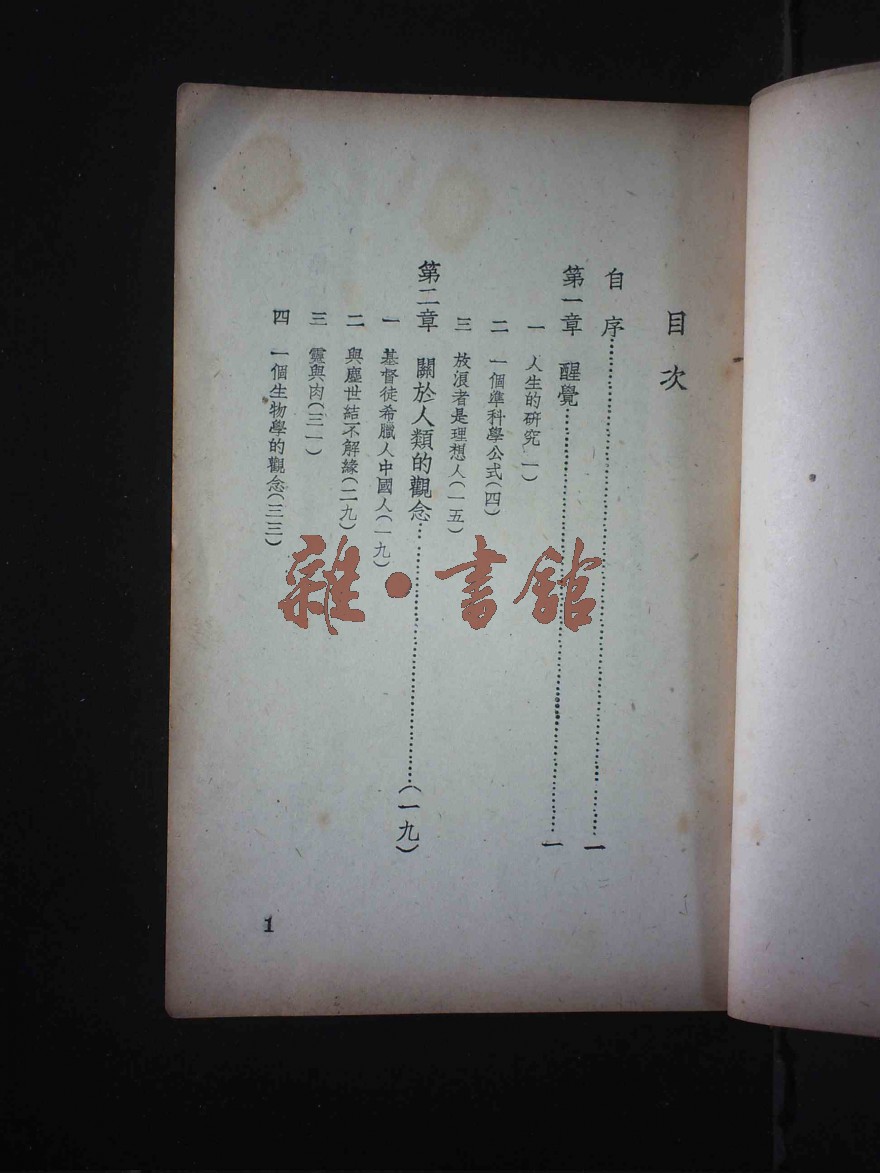 目次
自序……一
第一章 醒覺……一
一 人生的研究(一)
二 一個準科學公式(四)
三 放浪者是理想人(一五)
第二章 關於人類的觀念……(一九)
一 基督徒希臘人中國人(一九)
二 與塵世結不解緣(二九)
三 靈與肉(三一)
四 一個生物學的觀念(三三)
1
雜·書館